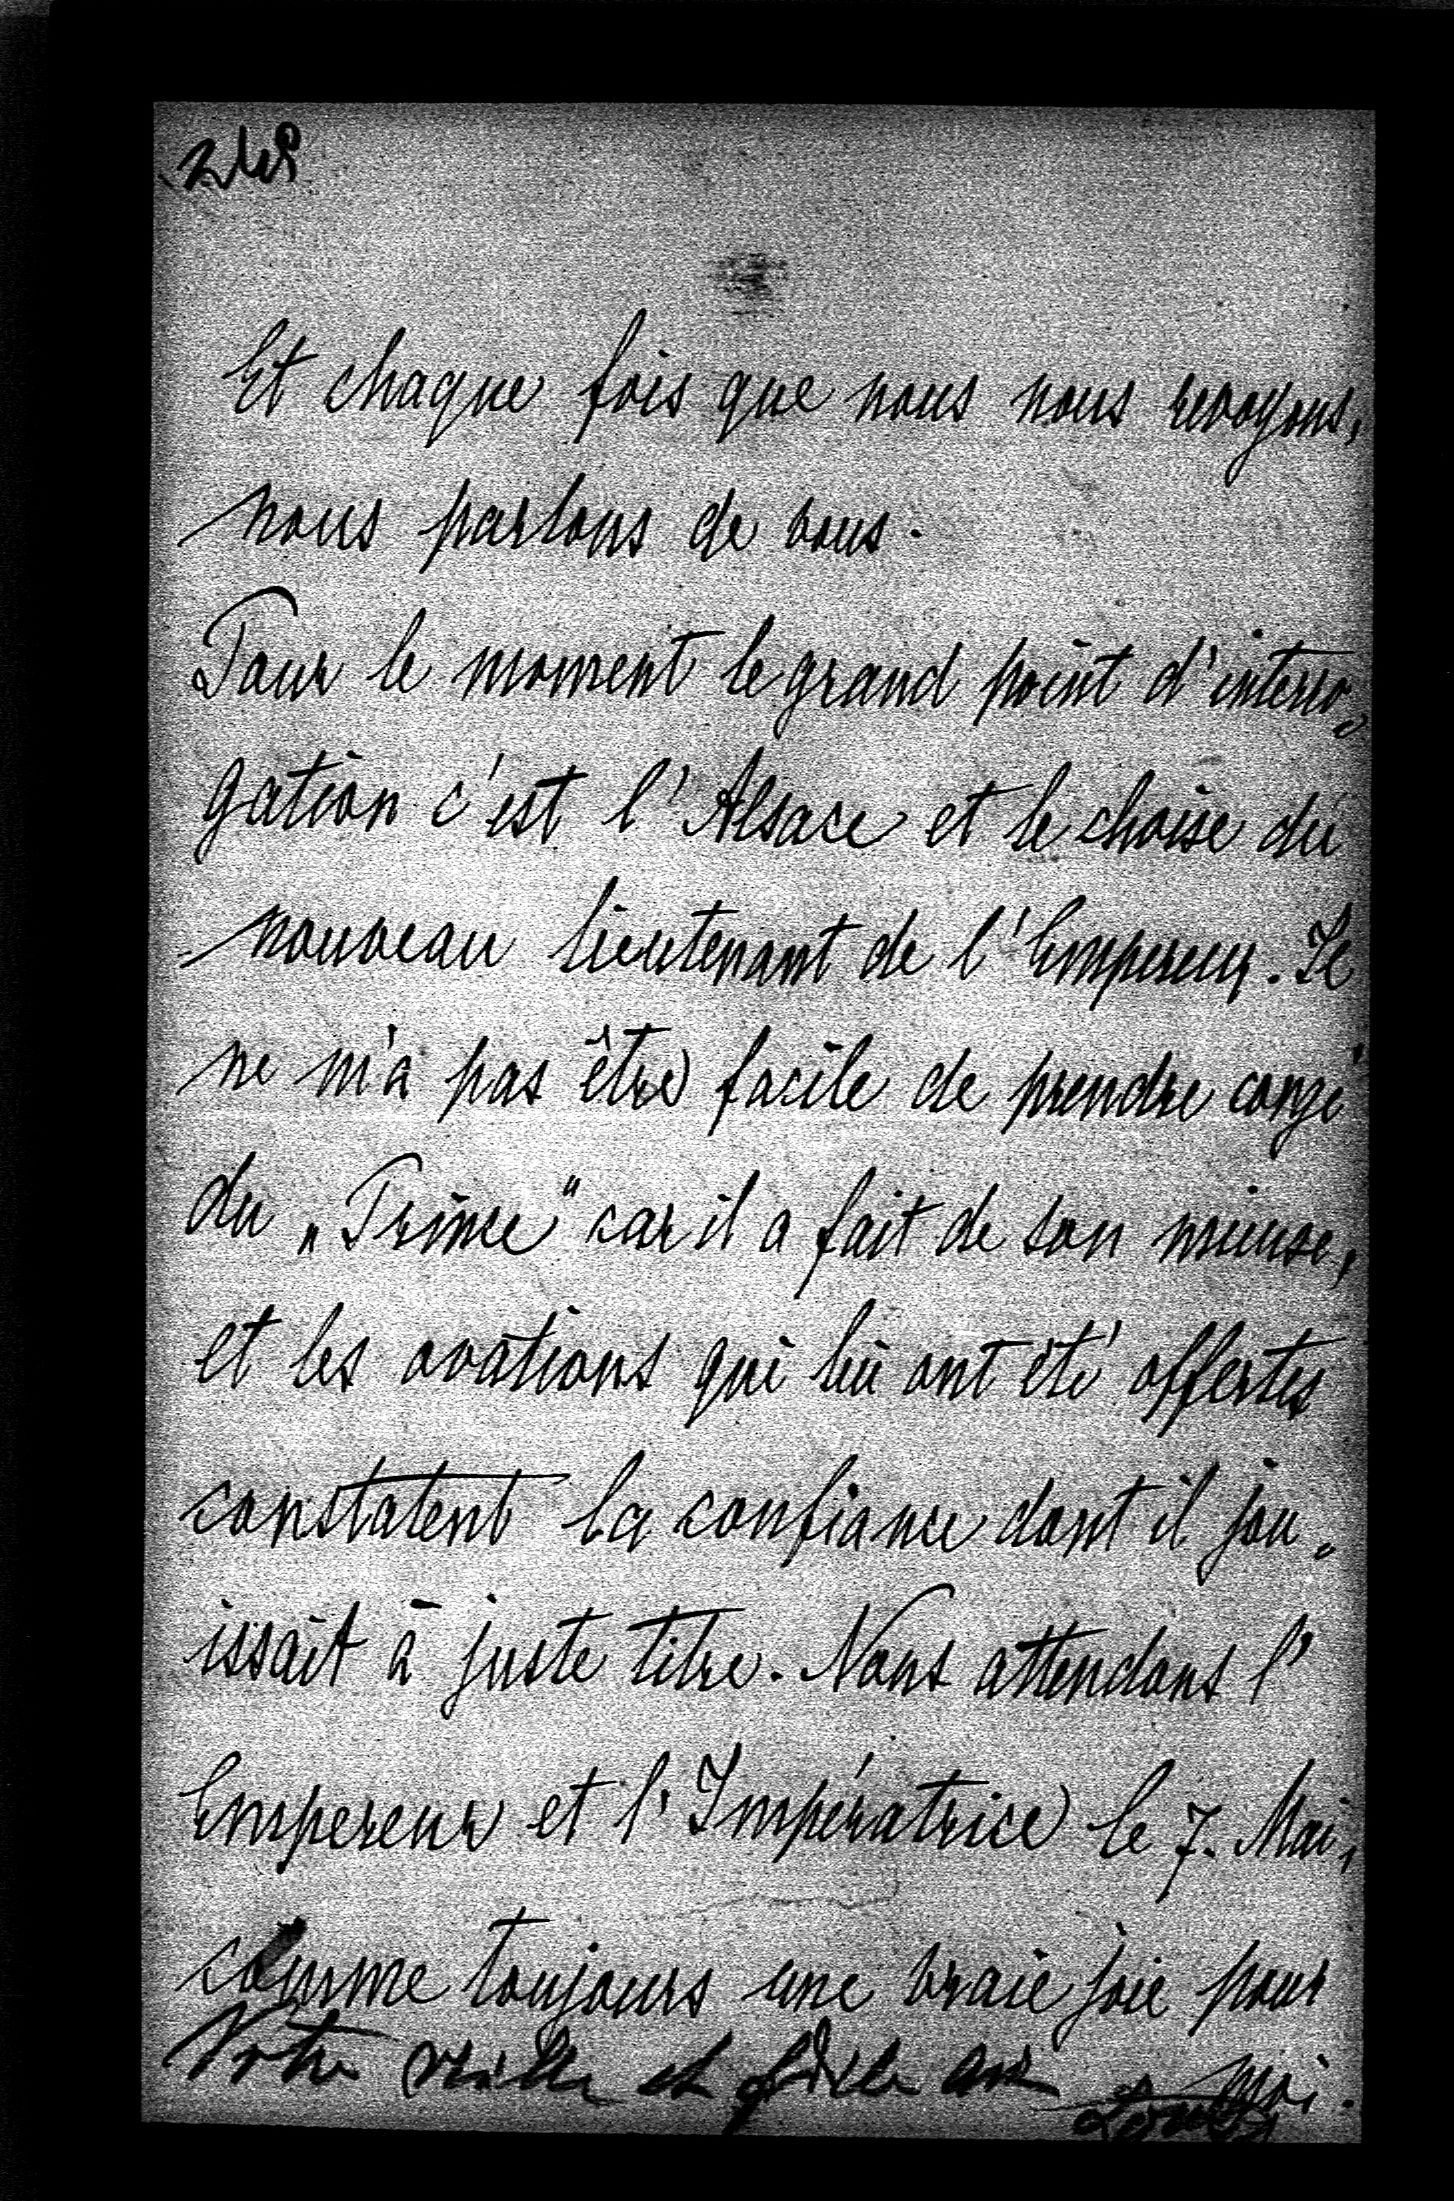 248
Et chaque fois que nous nous revoyons,
nous parlons de vous.
Pour le moment le grand point d'interro=
gation c'est l'Alsace et le choise du
nouveau lieutenant de l'Empereur. Il
ne m'a pas être facile de prendre congé
du „Prince" car il a fait de son mieuse,
et les ovations qui lui ont été offertes
constatent la confiance dont il jou=
issait à juste titre. Nous attendons l'
Empereur et l'Impératrice le 7. Mai,
comme toujours une vraie joie pour
moi.
Votre vieille et fidèle amie